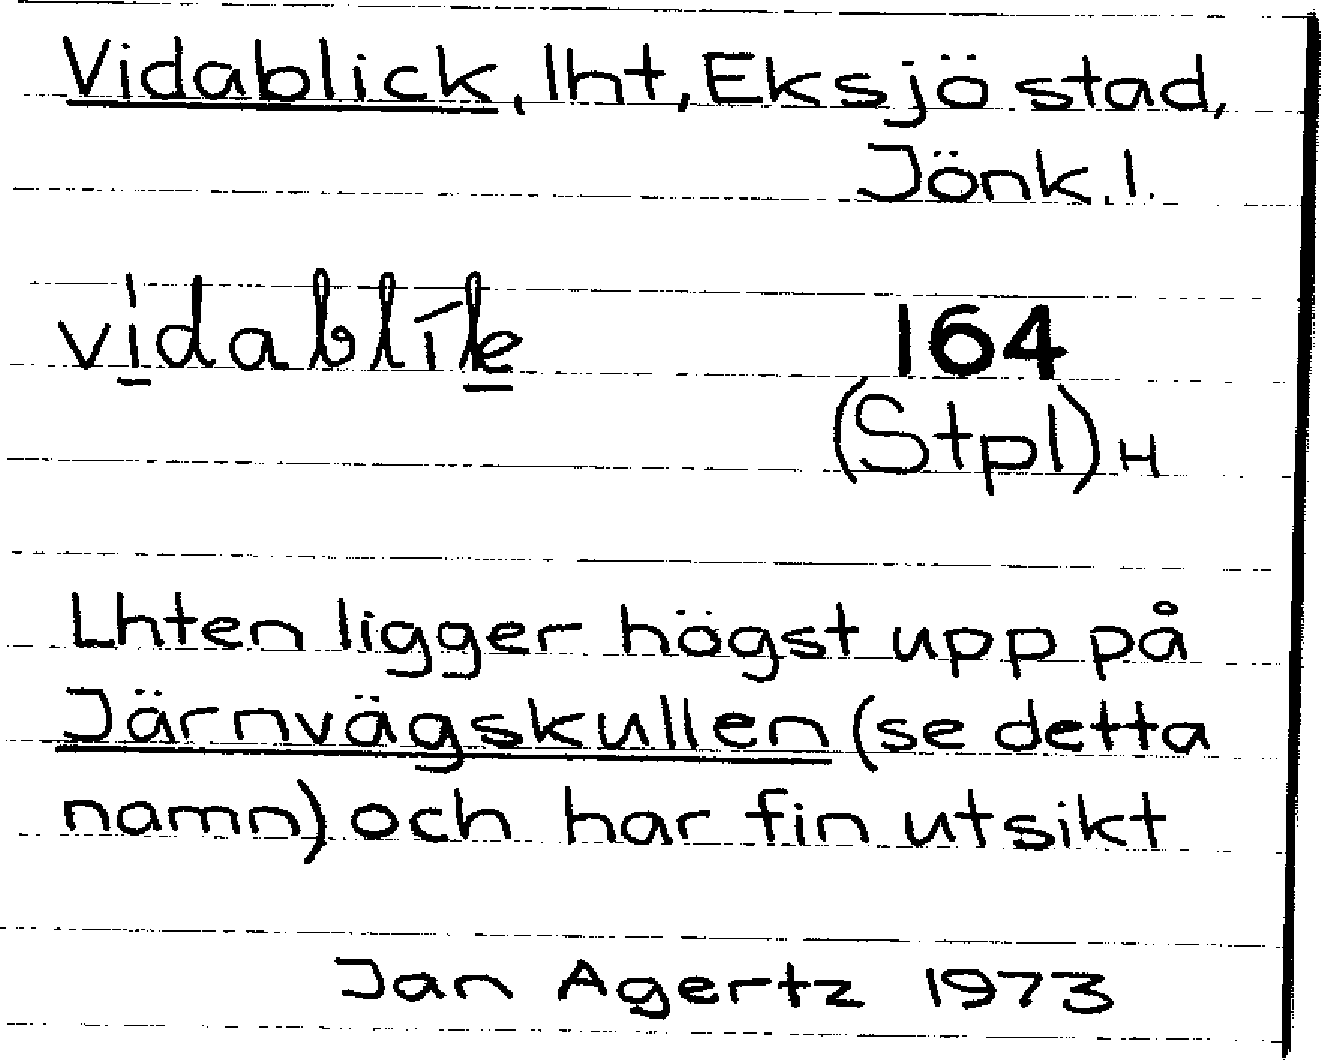 Vidablick, lht, Eksjö stad,
Jönk. l.
vidablik
164
(Stpl) H
Lhten ligger högst upp på
Järnvägskullen (se detta
namn) och har fin utsikt
Jan Agertz 1973